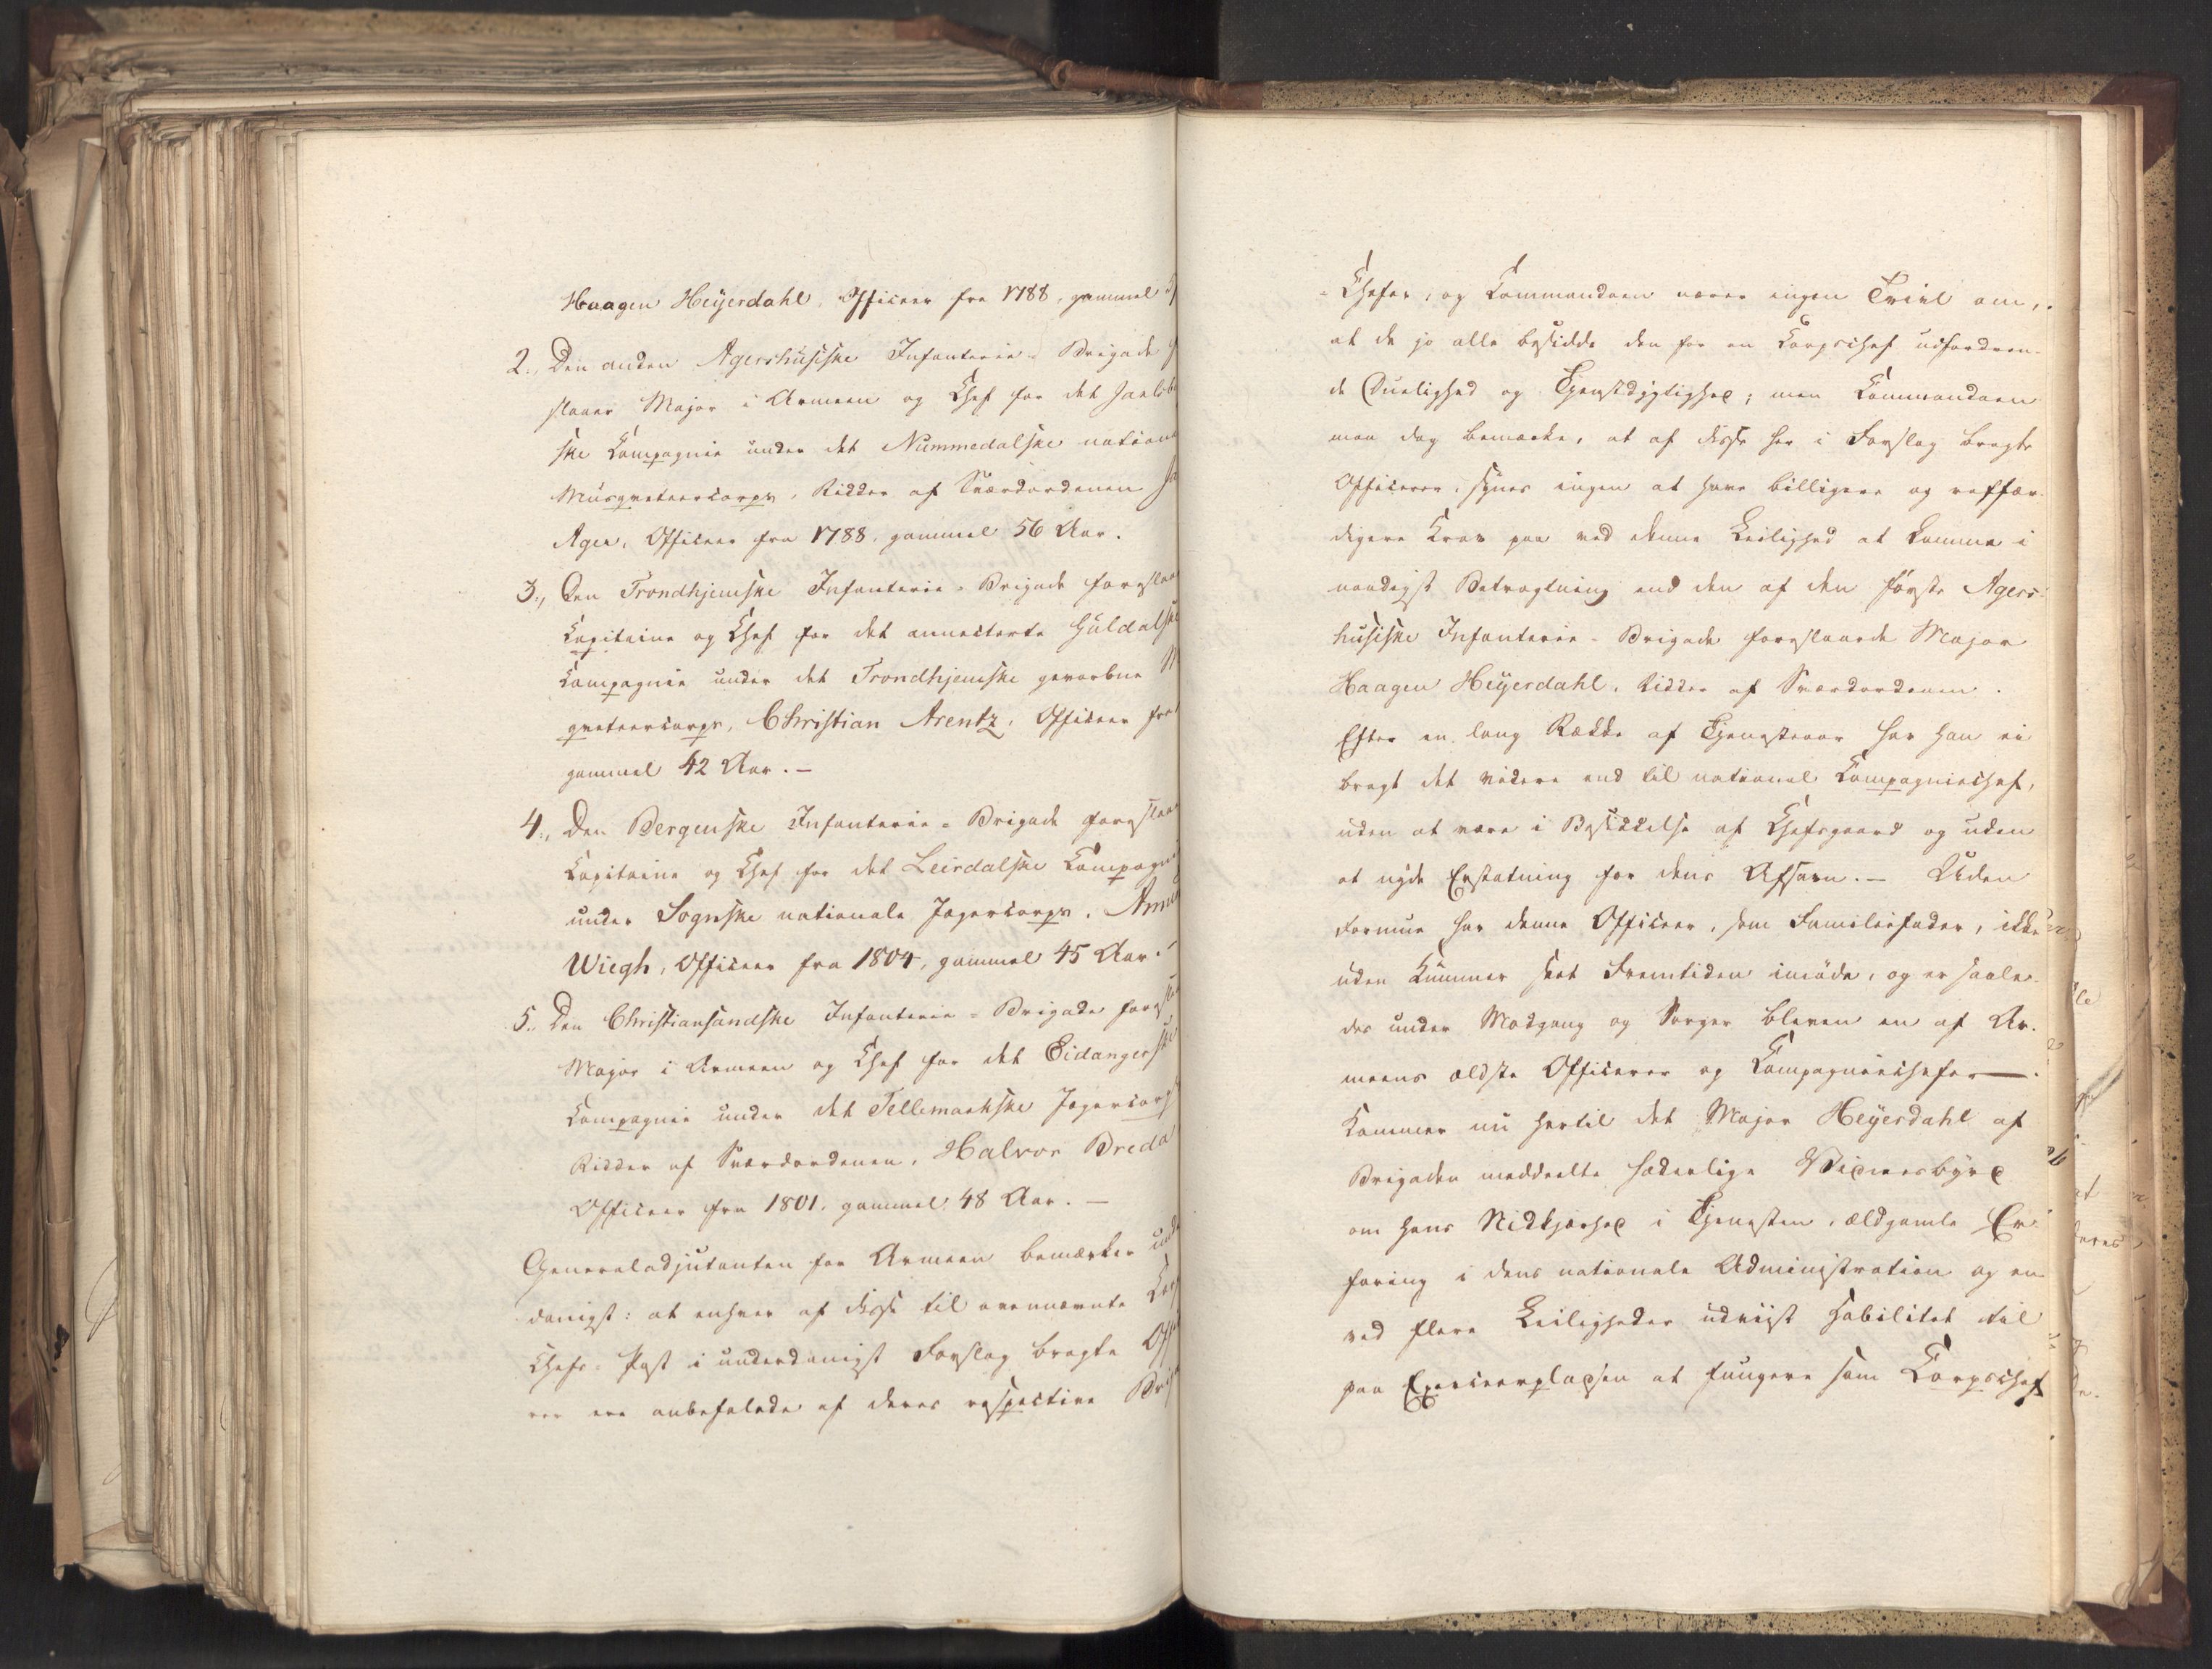 Haagen Heÿerdahl, Officeer fra 1788, gammel
2., Den anden Agershusiske Infanterie-Brigade
slaaer Major i Armeen og Chef for det Jarlsb
ske Compagnie under det Nummedalske nationa
Musqveteercorps, Ridder af Sværdordenen
Ager, Officeer fra 1788, gammel 56 Aar.
3., Den Trondhjemske Infanterie-Brigade foreslaa
Capitaine og Chef for det annecterte Guldalske
Compagnie under det Trondhjemske gevorbne M
qveteercorps, Christian Arentz, Officeer fra
gammel 42 Aar. -
4., Den Bergenske Infanterie-Brigade foreslaa
Capitaine og Chef for det Leirdalske Compagni
under Sognske nationale Jægercorps,
Wiegh, Officeer fra 1804, gammel 45 Aar. -
5., Den Christiansandske Infanterie-Brigade foresla
Major i Armeen og Chef for det Eidangerske
Compagnie under det Tellemarkske Jægercorps
Ridder af Sværdordenen, Halvor Breda
Officeer fra 1801, gammel 48 Aar. -
Generaladjutanten for Armeen bemærker und
danigst: at enhver af disse til ovennævnte Cor
Chefs-Post i underdanigst Forslag bragte Offi
rer ere anbefalede af deres respective Brig
-Chefer, og Commandoen nærer ingen Tvivl om,
at de jo alle besidde den for en Corpschef udfordren-
de Duelighed og Tjenstdygtighed; men Commandoen
maa dog bemærke, at af disse her i Forslag bragte
Officerer, synes ingen at have billigere og retfær-
digere Krav paa ved denne Leilighed at komme i
naadigst Betragtning end den af den første Agers-
husiske Infanterie-Brigade foreslaaede Major
Haagen Heÿerdahl, Ridder af Sværdordenen.
Efter en lang Række af Tjenesteaar har han ei
bragt det videre end til national Compagniechef,
uden at være i Besiddelse af Chefsgaard og uden
at nyde Erstatning for dens Afsavn. - Uden
Formue har denne Officeer, som Familiefader, ikke
uden Kummer seet Fremtiden imøde, og er saale-
des under Modgang og Sorger bleven en af Ar-
meens ældste Officerer og Compagniechefer -.
Kommer nu hertil det Major Heÿerdahl af
Brigaden meddeelte hæderlige Vidnesbyrd
om hans Nidkjærhed i Tjenesten, ældgamle Er-
faring i dens nationale Administration og en
ved flere Leiligheder udviist Habilitet til
paa Exerceerpladsen at fungere som Corpschef